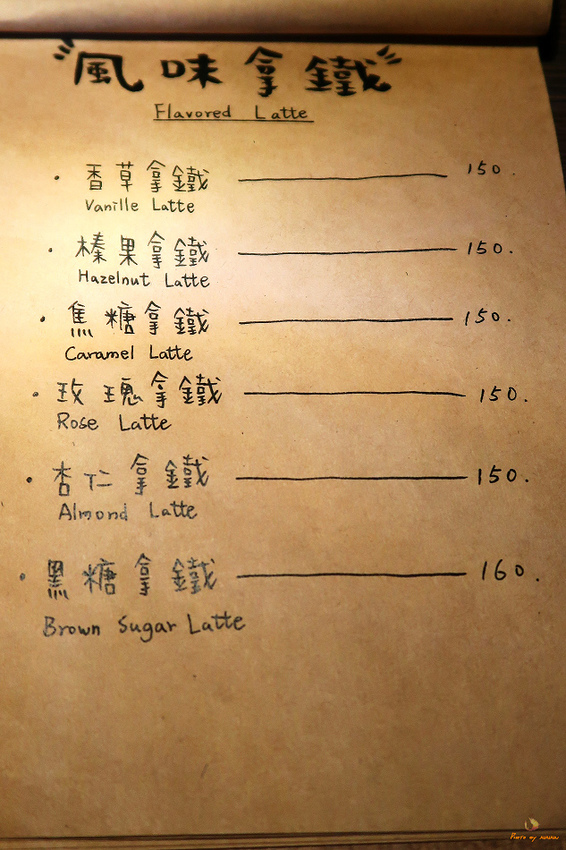 風味拿鐵
Flavored Latte
· 香草拿鐵 150.
Vanille Latte
· 榛果拿鐵 150.
Hazelnut Latte
· 焦糖拿鐵 150.
Caramel Latte
· 玫瑰拿鐵 150.
Rose Latte
· 杏仁拿鐵 150.
Almond Latte
· 黑糖拿鐵 160.
Brown Sugar Latte
Photo by